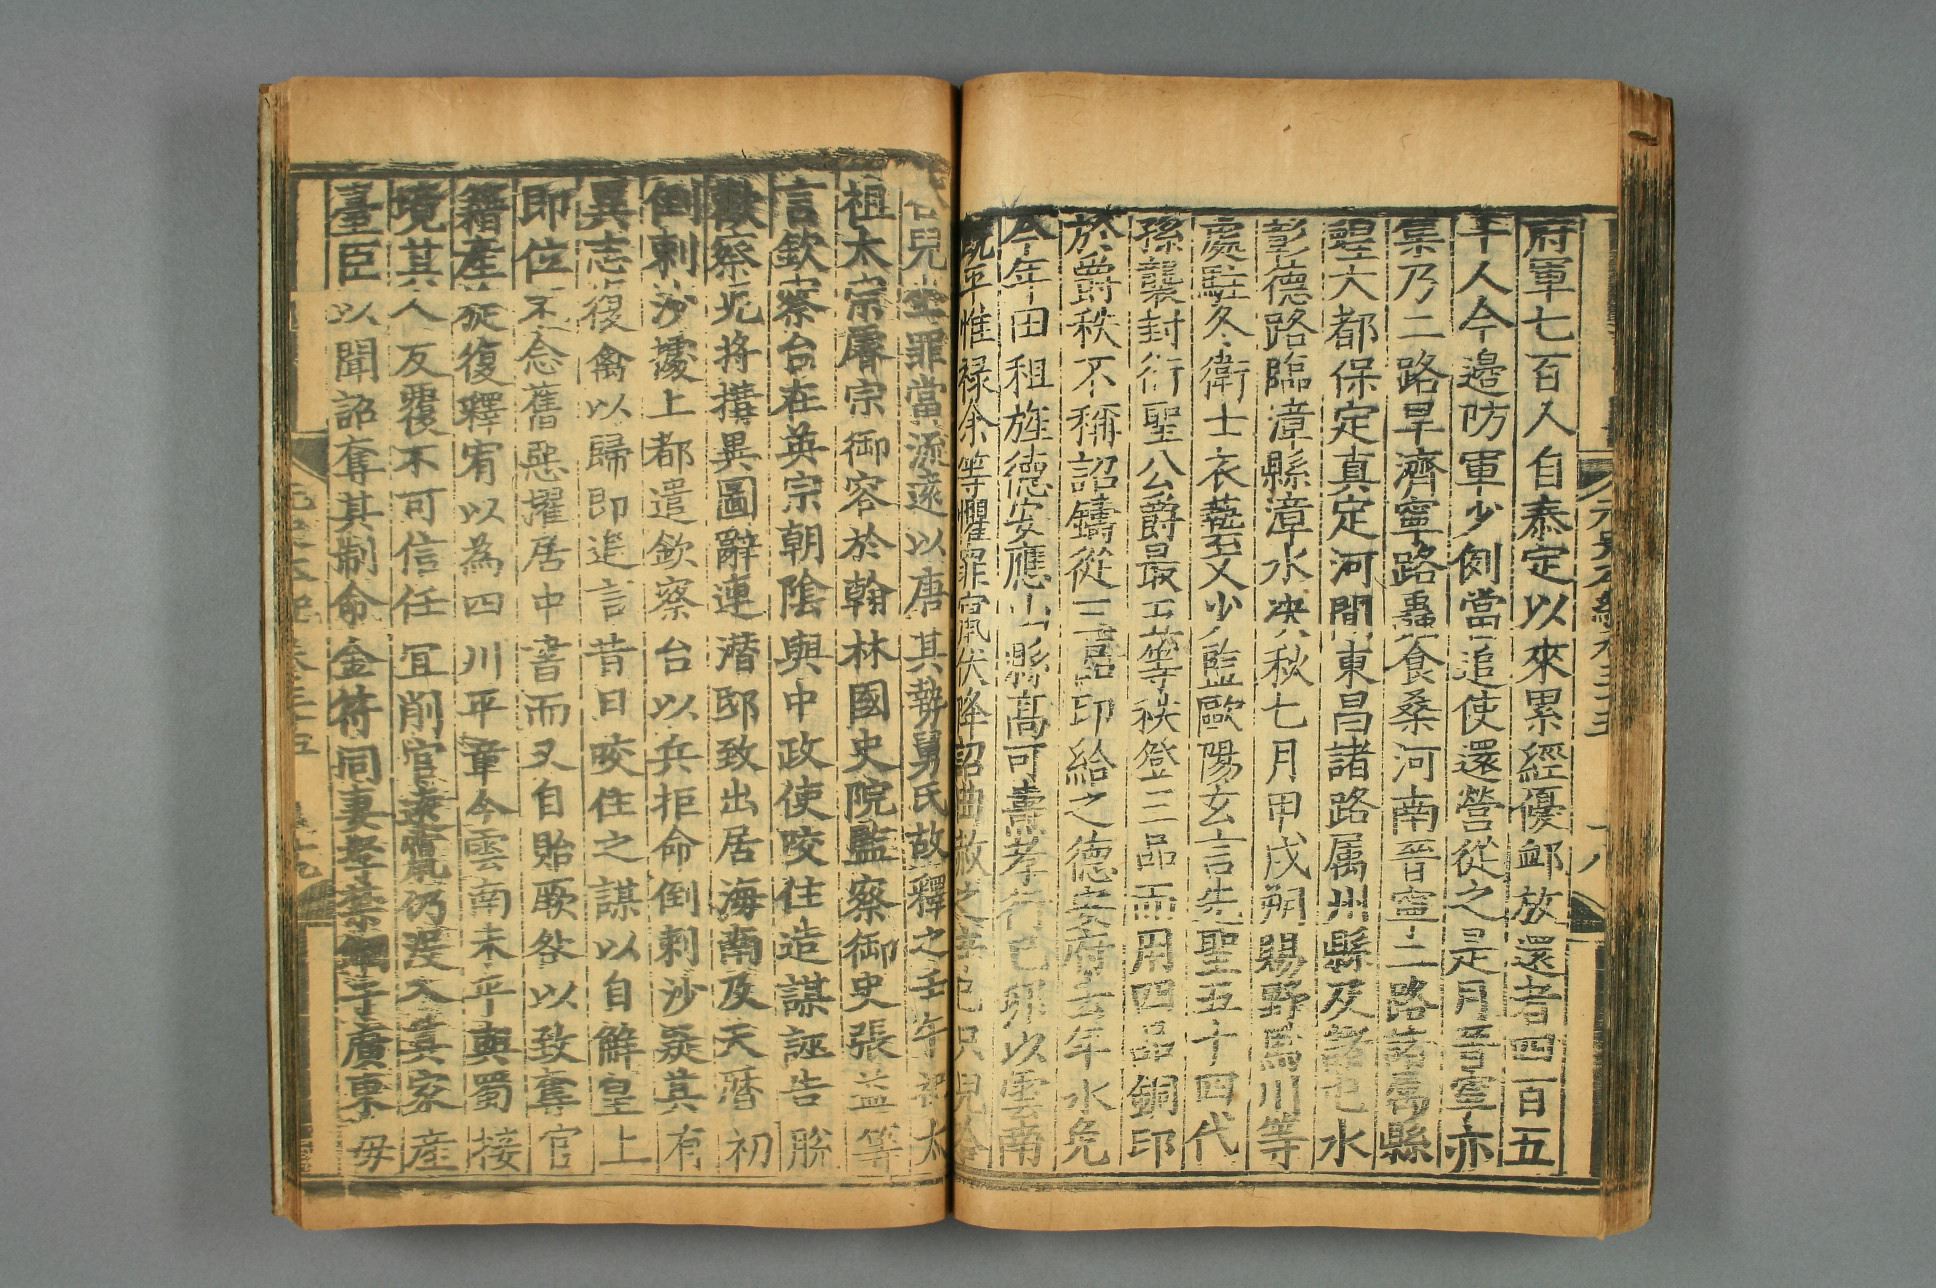 府軍七百人自泰定以來累經優邮放還者四百五
十人今邊防軍少例當追使還營從之是月晉寧亦
集乃二路旱濟寧路蟲食桑河南晉寧二路諸屬縣
蝗大都保定真定河間東昌諸路属州縣及諸屯水
彰德路臨漳縣漳水决秋七月甲戌朔賜野馬川等
處駐冬衛士衣藝文少監歐陽玄言先聖五十四代
孫襲封衍聖公爵最五等秩登三品而用四品銅印
於爵秩不稱詔鑄從三品印給之德安府去年水免
今年田租旌德安應山縣高可燾孝行己卯以雲南
既平惟禄余等懼罪竄伏降詔曲赦之辛巳只兒哈
答兒坐罪當流遠以唐其勢舅氏故釋之壬午祀太
祖太宗睿宗御容於翰林國史院監察御史張益等
言欽察台在英宗朝陰與中政使咬住造謀誣告脫
歡察兒將搆異圖辭連潛邸致出居海南及天曆初
倒剌沙據上都遣欽察台以兵拒命倒剌沙疑其有
異志復禽以歸即追言昔日咬住之謀以自解皇上
即位不念舊惡擢居中書而又自貽厥咎以致奪官
籍產旋復釋宥以為四川平章今雲南未平與蜀接
境其人反覆不可信任宜削官遠竄仍没入其家產
臺臣以聞詔奪其制命金符同妻孥禁錮于廣東毋
元史本紀卷三十五
十八
元史本紀卷三十五
十九